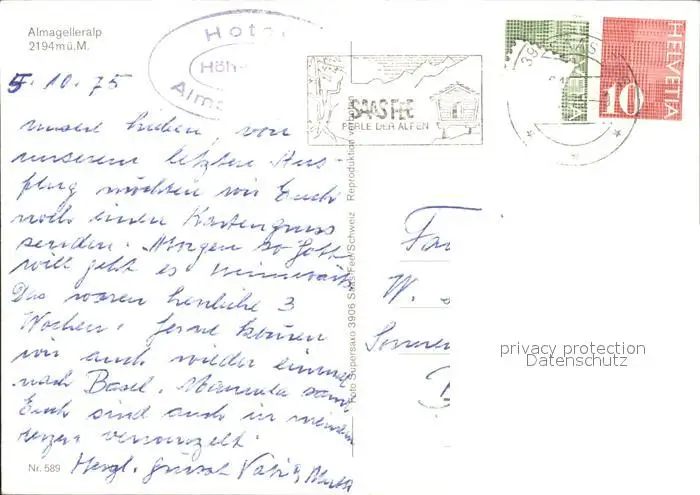 Almagelleralp
2194 m ü. M.
Hotel
Höh
Alma
5. 10. 75
SAAS FEE
PERLE DER ALPEN
HELVETIA
HELVETIA
10
unsere Lieben, von
unserem letzten Aus-
flug möchten wir Euch
noch einen Kartengruss
senden. Morgen so Gott
will geht es
Das waren herrliche 3
Wochen. Gerne kommen
wir auch wieder einmal
nach Basel. samt
Euch sind auch in meinem
Herzen
Herzl. Grüsse
Nr. 589
Foto Supersaxo 3906 Saas Fee/Schweiz Reproduktion verboten
Fam
W.
privacy protection
Datenschutz